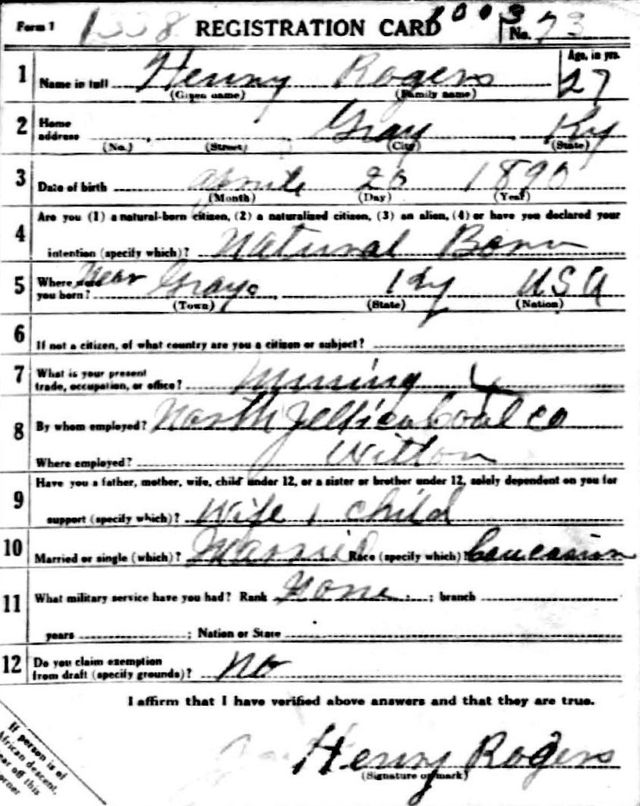 Form 1 1338 REGISTRATION CARD 6003 No. 73
1 Name in full Henry Rogers Age, in yrs. 27
(Given name) (Family name)
2 Home address Gray Ky
(No.) (Street) (City) (State)
3 Date of birth Aprile 20 1890
(Month) (Day) (Year)
4 Are you (1) a natural-born citizen, (2) a naturalized citizen, (3) an alien, (4) or have you declared your
intention (specify which)? Natural Born
5 Where were you born? Near Gray Ky USA
(Town) (State) (Nation)
6 If not a citizen, of what country are you a citizen or subject?
7 What is your present trade, occupation, or office? Mining
8 By whom employed? North Jellico Coal Co
Where employed? Wilton
9 Have you a father, mother, wife, child under 12, or a sister or brother under 12, solely dependent on you for
support (specify which)? Wife 1 child
10 Married or single (which)? Married Race (specify which)? Caucasian
11 What military service have you had? Rank None ; branch
years ; Nation or State
12 Do you claim exemption from draft (specify grounds)? No
I affirm that I have verified above answers and that they are true.
Henry Rogers
(Signature or mark)
If person is of
African descent,
off this
corner